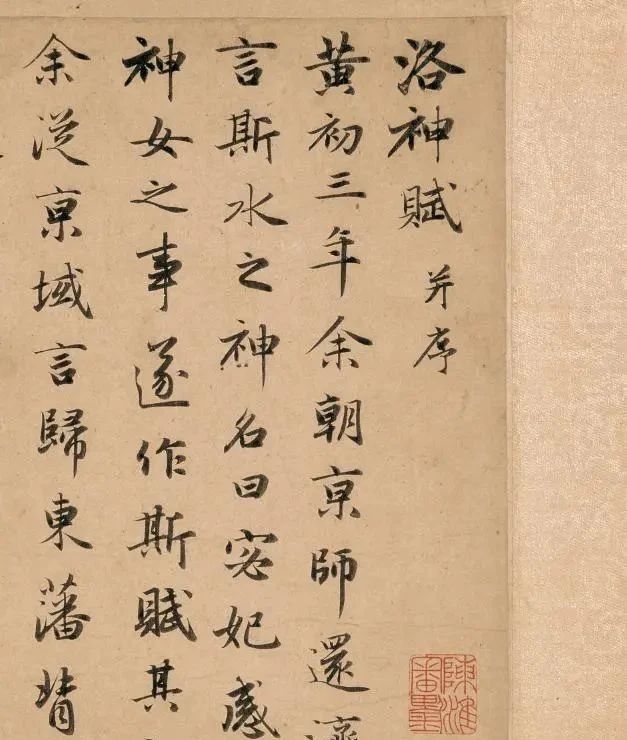 洛神賦 并序
黄初三年余朝京師還濟
言斯水之神名曰宓妃感
神女之事遂作斯賦其
余從京域言歸東藩背